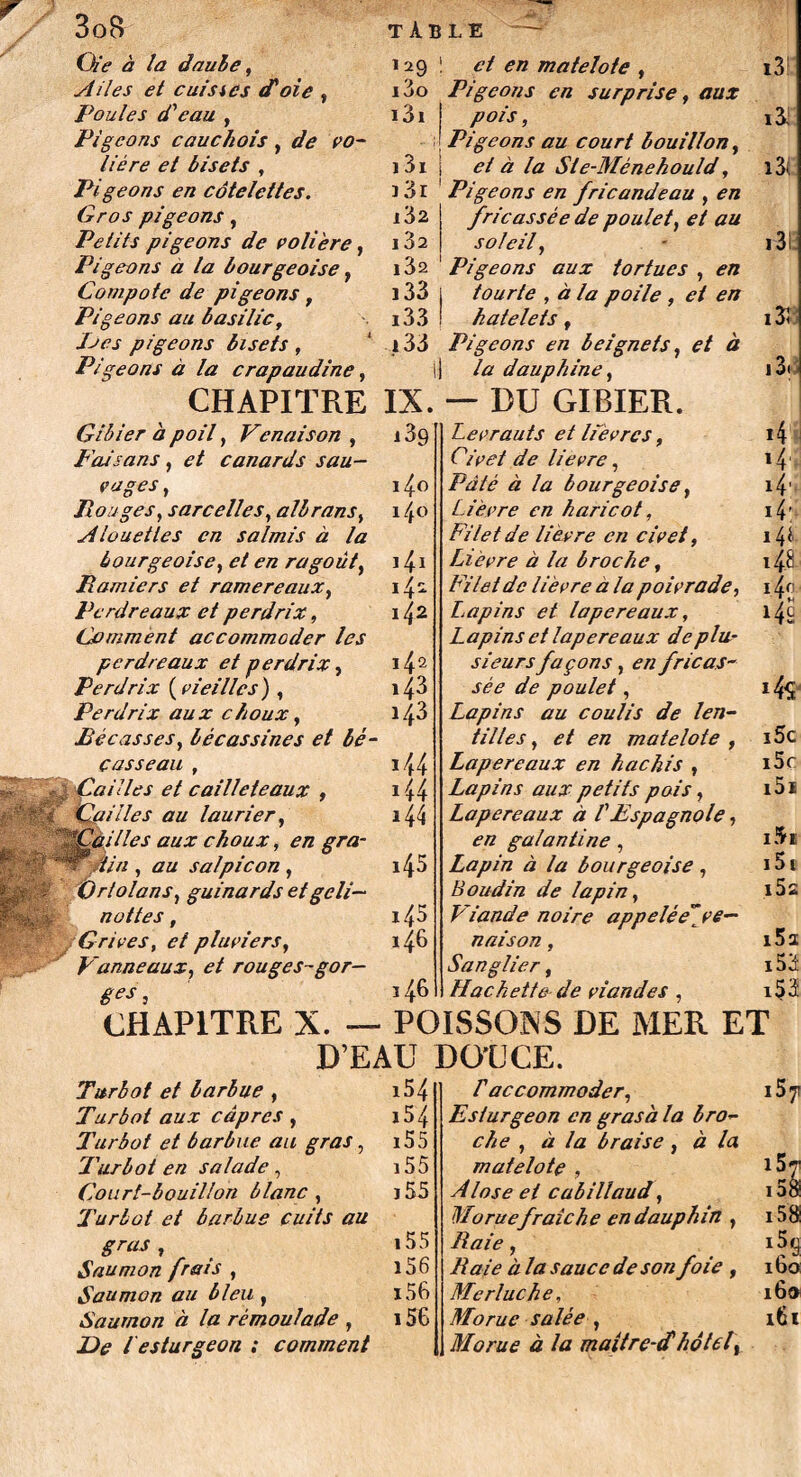 308 TABLE
Oie à la daube, 129
Ailes et cuisses d'oie, 130
Poules d'eau, 131
Pigeons cauchois, de vo-
lière et bisets, 131
Pigeons en côtelettes. 131
Gros pigeons, 132
Petits pigeons de volière, 132
Pigeons à la bourgeoise, 132
Compote de pigeons, 133
Pigeons au basilic, 133
Des pigeons bisets, 133
Pigeons à la crapaudine,
et en matelote, 13
Pigeons en surprise, aux
pois, 13
Pigeons au court bouillon,
et à la Ste-Ménehould, 13
Pigeons en fricandeau, en
fricassée de poulet, et au
soleil, 13
Pigeons aux tortues, en
tourte, à la poile, et en
hatelets, 13
Pigeons en beignets, et à
la dauphine, 13
CHAPITRE IX. — DU GIBIER.
Gibier à poil, Venaison, 139
Faisans, et canards sau-
vages, 140
Rouges, sarcelles, albrans, 140
Alouettes en salmis à la
bourgeoise, et en ragoût, 141
Ramiers et ramereaux, 142
Perdreaux et perdrix, 142
Comment accommoder les
perdreaux et perdrix, 142
Perdrix (vieilles), 143
Perdrix aux choux, 143
Bécasses, bécassines et bé-
casseau, 144
Cailles et cailleteaux, 144
Cailles au laurier, 144
Cailles aux choux, en gra-
tin, au salpicon, 145
Ortolans, guinards et geli-
nottes, 145
Grives, et pluviers, 146
Vanneaux, et rouges-gor-
ges, 146
Levrauts et lièvres, 14
Civet de lievre, 14
Pâté à la bourgeoise, 14
Lièvre en haricot, 14
Filet de lièvre en civet, 148
Lièvre à la broche, 148
Filet de lièvre à la poivrade, 14
Lapins et lapereaux, 149
Lapins et lapereaux de plu-
sieurs façons, en fricas-
sée de poulet, 149
Lapins au coulis de len-
tilles, et en matelote, 150
Lapereaux en hachis, 150
Lapins aux petits pois, 151
Lapereaux à l'Espagnole,
en galantine, 151
Lapin à la bourgeoise, 151
Boudin de lapin, 152
Viande noire appelée ve-
naison, 152
Sanglier, 153
Hachette de viandes, 153
CHAPITRE X. — POISSONS DE MER ET
D'EAU DOUCE.
Turbot et barbue, 154
Turbot aux câpres, 154
Turbot et barbue au gras, 155
Turbot en salade, 155
Court-bouillon blanc, 155
Turbot et barbue cuits au
gras, 155
Saumon frais, 156
Saumon au bleu, 156
Saumon à la rémoulade, 156
De l'esturgeon : comment
l'accommoder, 157
Esturgeon en gras à la bro-
che, à la braise, à la
matelote, 157
Alose et cabillaud, 158
Morue fraîche en dauphin, 158
Raie, 159
Raie à la sauce de son foie, 160
Merluche, 160
Morue salée, 161
Morue à la maître-d'hôtel,